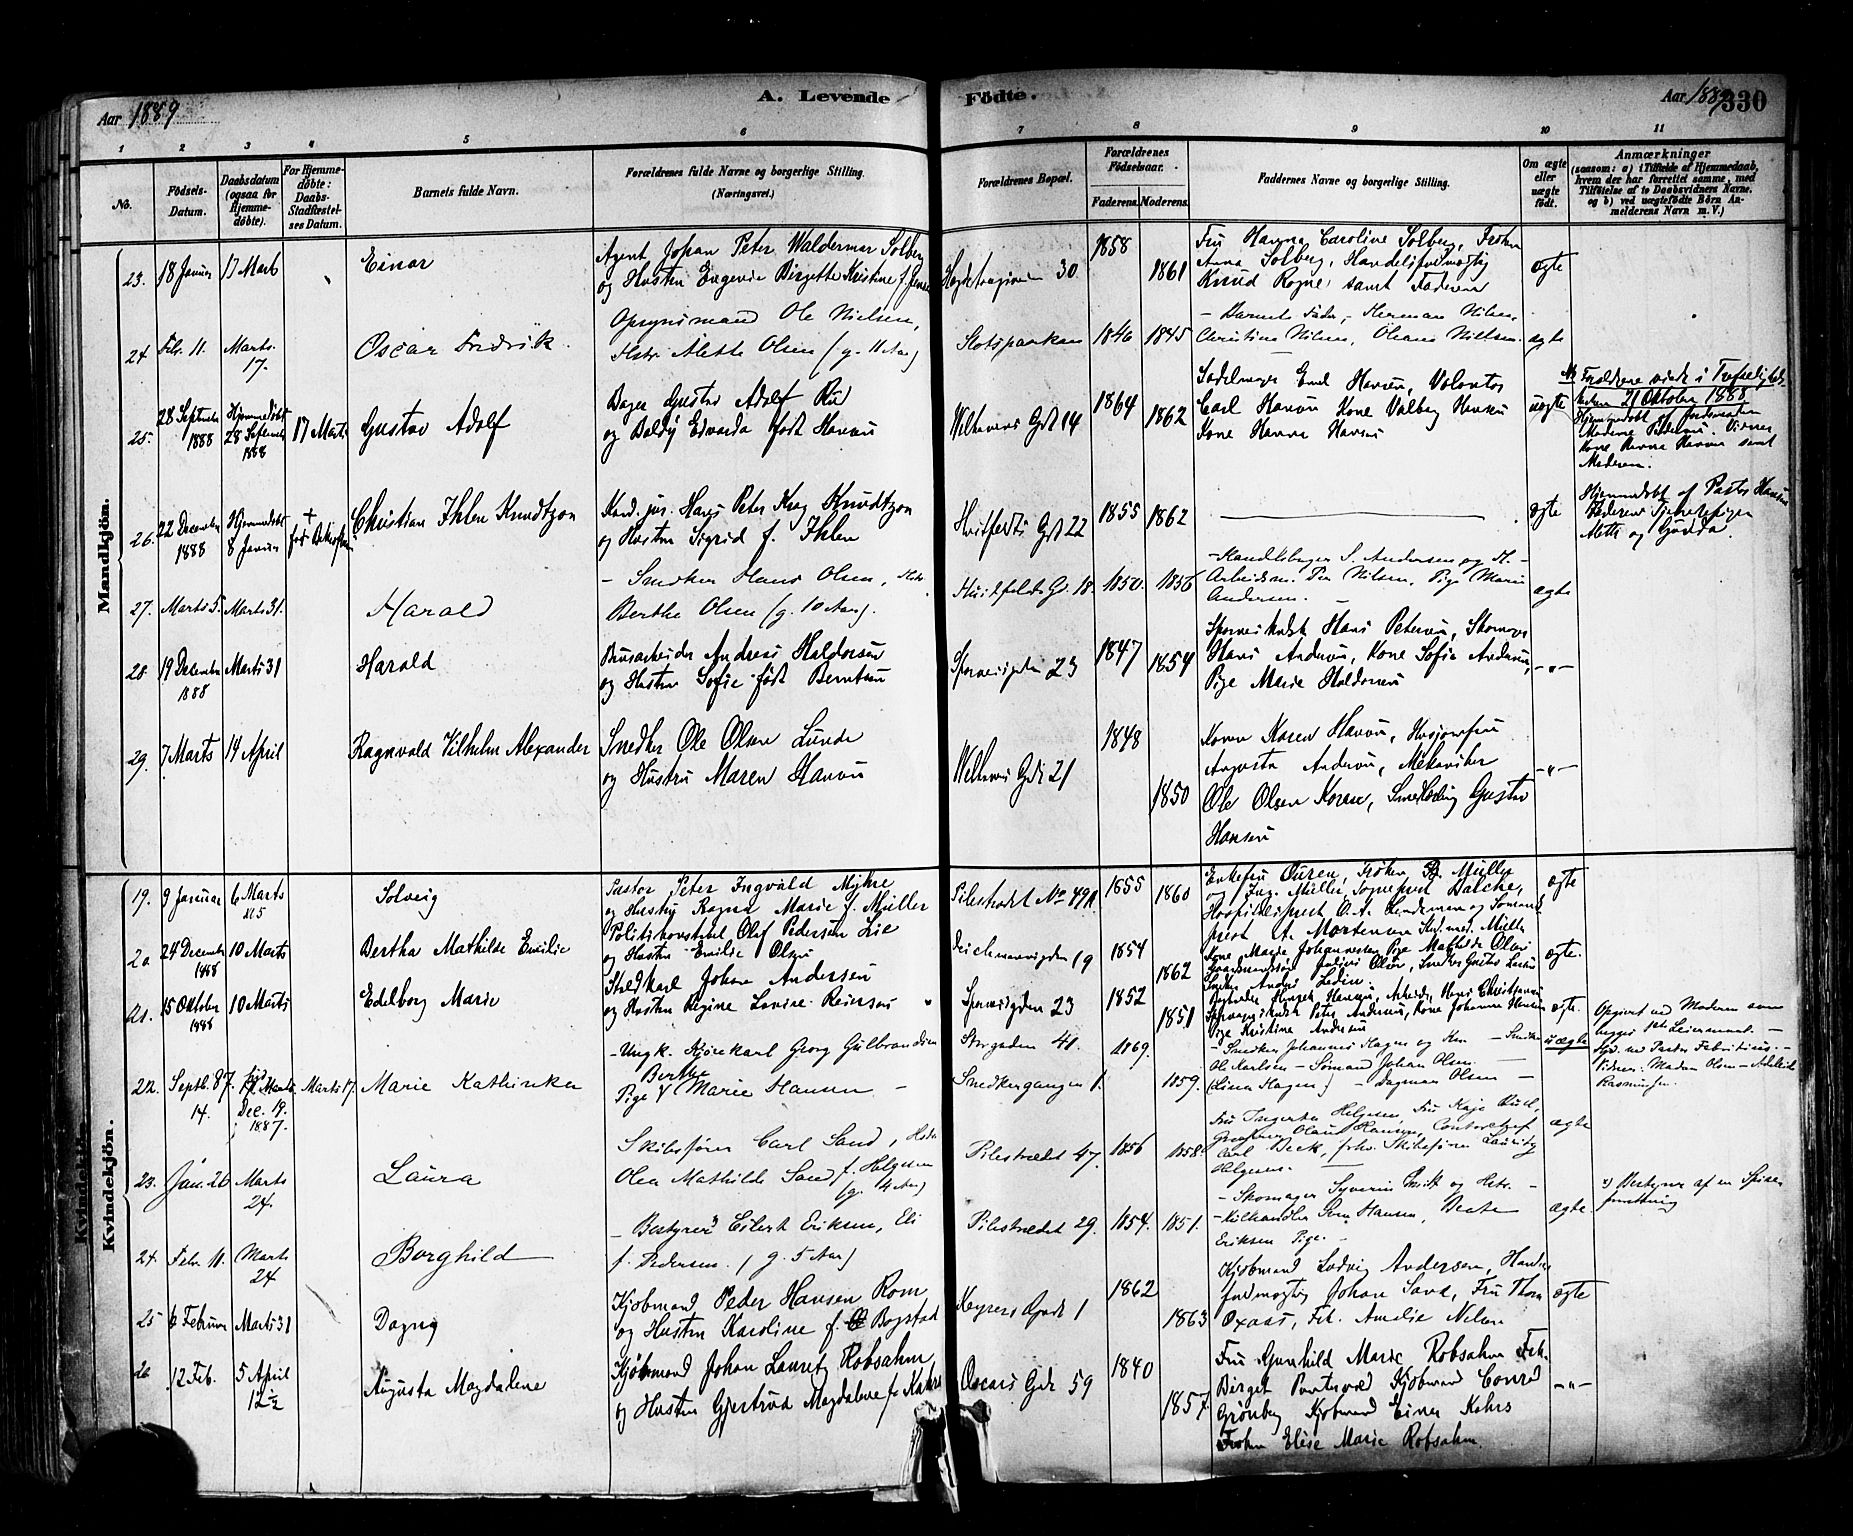 A. Levende Födte.
Aar 1889
Aar 1889 330
1 2 3 4 5 6 7 8 9 10 11
No.
Födsels-Datum.
Daabsdatum (ogsaa for Hjemmedöbte).
For Hjemmedöbte: Daabs-Stadfæstelses Datum.
Barnets fulde Navn.
Forældrenes fulde Navne og borgerlige Stilling. (Næringsvei.)
Forældrenes Bopæl.
Forældrenes Födselsaar.
Faderens. Moderens.
Faddernes Navne og borgerlige Stilling.
Om ægte eller uægte födt.
Anmærkninger
(saasom: a) i Tilfælde af Hjemmedaab, hvem der har forrettet samme, med Tilföielse af to Daabsvidners Navne, og b) ved uægtefödte Börn Anmelderens Navn m. V.)
Mandkjön.
23. 18 Januar 17 Marts
Einar
Agent Johan Peter Waldemar Solberg
og Hustru Eugenie Birgitte Kristine f. Jensen
30 1858 1861
Fru Hanna Caroline Solberg, Frøken
Anna Solberg, Handelsfuldmægtig
Knud Rogne, samt Faderen
ægte
24. Febr. 11. Marts 17.
Oscar Fredrik.
Opsynsmand Ole Nielsen,
Hstr. Alette Olsen (g. 11 Aar)
Slotsparken 1846 1845
– Barnets Fader, Herman Nilsen,
Christine Nilsen, Oleane Nielsen.
ægte
25. 28 September 1888 Hjemmedöbt 28 Septemb 1888 17 Marts
Gustav Adolf
Bager Gustav Adolf Rud
og Baldy Edvarda født Hansen
Welhavens Gd 14 1864 1862
Sadelmager Emil Hansen, Volontør
Carl Hansen Kone Valborg Hansen
Kone Hanna Hansen
uægte
Forældrene viede i Trefoldigheds
kirken 21 Oktober 1888
Hjemmedöbt af Jordemoder
Madame Pettersen. Vidner
Kone Hanna Hansen samt
Moderen.
26. 22 December 1888 Hjemmedöbt 8 Januar + før Bekræft
Christian Ihlen Knudtzon
Kand. jur. Hans Peter Krag Knudtzon
og Hustru Sigrid f. Ihlen
Hvitfeldts Gd 22 1855 1862
ægte
Hjemmedöbt af Pastor Hansen
Faderens Tjenestepiger
Mette og Gudda.
27. Marts 5. Marts 31.
Harald
– Snedker Hans Olsen, Hstr.
Berthe Olsen (g. 10 Aar).
Huitfeldts Gd. 18. 1850. 1856
– Handelsborger S. Andersen og H. –
Arbeidsm. Per Nilsen, Pige Marie
Andersen. –
ægte
28. 19 December 1888 Marts 31
Harald
Brusarbeider Andreas Haldorsen
og Hustru Sofie født Berntsen
Sporveisgaden 23 1847 1854
Sporveiskudsk Hans Petersen, Skomager
Hans Andersen, Kone Sofie Andersen,
Pige Marie Haldorsen
–"–
29. 7 Marts 14 April
Ragnvald Vilhelm Alexander
Snedker Ole Olsen Lunde
og Hustru Maren Hansen
Welhavens Gd 21 1848 1850
Karen Hansen,
Augusta Andersen, Mekaniker
Ole Olsen Koren, Gustav
Hansen
–"–
Kvindekjön.
Kvindekjön.
19. 9 Januar 6 Marts
Solveig
Pastor Peter Ingvald Myhre
og Hustru Ragna Marie f. Müller
Pilestrædet No 49A 1855 1860
Enkefru Ouren, Frøken D. Müller
og Ing. Müller, Sogneprest Balche,
Hospitalsprest O. A. Lindeman og Sømands
prest A. Mortensen Stud. med. Müller
ægte
20 24 December 1888 10 Marts
Bertha Mathilde Emilie
Politikonstabel Olaf Pedersen Lie
og Hustru Emilie Olsen
Deichmansgaden 19 1854 1862
Kone Marie Johannesen Pige Mathilde Olsen
Julius Olsen, Snedker Gustav Larsen
Anders Ledin.
ægte.
21. 15 Oktober 1888 10 Marts
Edelborg Marie
Stedkarl Johan Andersen
og Hustru Regine Lovise Reinsen
Sporveisgaden 23 1852 1851
Hansen, Arbeider Hans Christiansen
Peter Andersen, Kone Johanne Hansen
Pige Kristine Andersen
ægte
22. Septb. 87. 14. Dec. 19. 1887. Marts 17.
Marie Kathinka
– Ungk. Kjørekarl Georg Gulbrandsen
Pige Berthe Marie Hansen –
Storgaden 41. 1869.
Snedkergangen 1. 1859.
– Snedker Johannes Hagen og Kone – Snedker
Ole Karlsen – Sømand Johan Olsen. –
(Lina Hagen) – Dagmar Olsen –
uægte
Opgivet ved Moderen som
begges 1ste Leiermaal. –
Hjd. ved Pastor Fabritius. –
Vidner: Madam Olsen – Adelaide
Rasmussen.
23. Jan. 26 Marts 24.
Laura
Skibsfører Carl Sand, Hstr.
Olea Mathilde Sand f. Helgesen
(g. 4 Aar)
Pilestrædet 47. 1856 1858.
Fru Ingerta Helgesen, Fru Kaja Ruud,
Olaus Hansen, Contorchef
Carl Beck, Skibsfører Lauritz
Helgesen. –
ægte
24. Febr. 11. Marts 24
Borghild
– Bestyrer Eilert Eriksen, Eli
f. Pedersen. (g. 5 Aar)
Pilestrædet 29. 1854. 1851.
– Skomager Syverin Smidt og Hstr. –
– Milkhandler Sam Hansen, Beate
Eriksen Pige. –
ægte.
Bestyrer af en Spise-
forretning
25 6 Februar Marts 31
Dagny
Kjøbmand Peder Hansen Rom
og Hustru Karoline f. Bogstad
Keysers Gade 1 1862 1863
Kjøbmand Ludvig Andersen, Handels
fuldmægtig Johan Sand, Fru Thora
Oxaas, Frk. Amalie Nelsen
ægte
26 12 Feb. 5 April
Augusta Magdalene
Kjøbmand Johan Lauritz Robsahm
og Hustru Gjertrud Magdalene f. Kahrs
Oscars Gde 59 1840 1857.
Fru Gunhild Marie Robsahm Frk.
Birget Kjøbmand Conrad
Grönberg Kjøbmand Einar Kahrs
Frøken Elise Marie Robsahm.
–"–